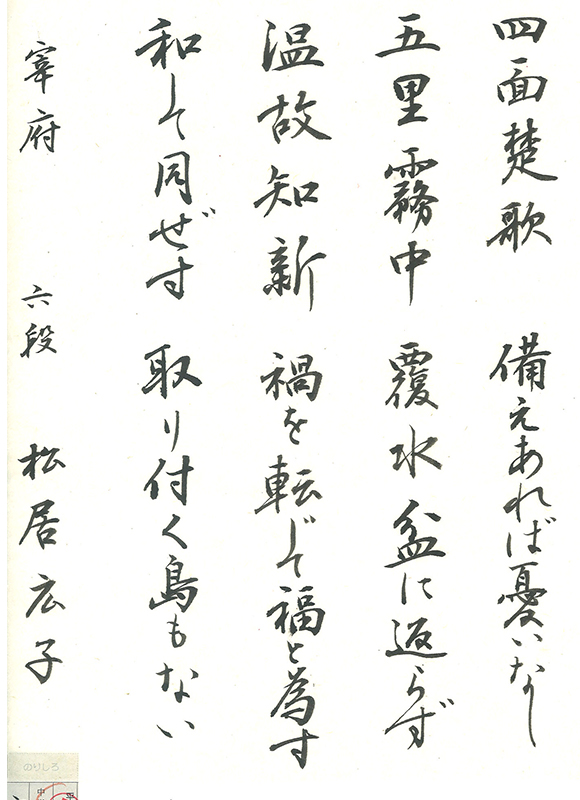 四面楚歌　備えあれば憂いなし
五里霧中　覆水盆に返らず
温故知新　禍を転じて福と為す
和して同ぜず　取り付く島もない
宰府　六段　松居広子
のりしろ